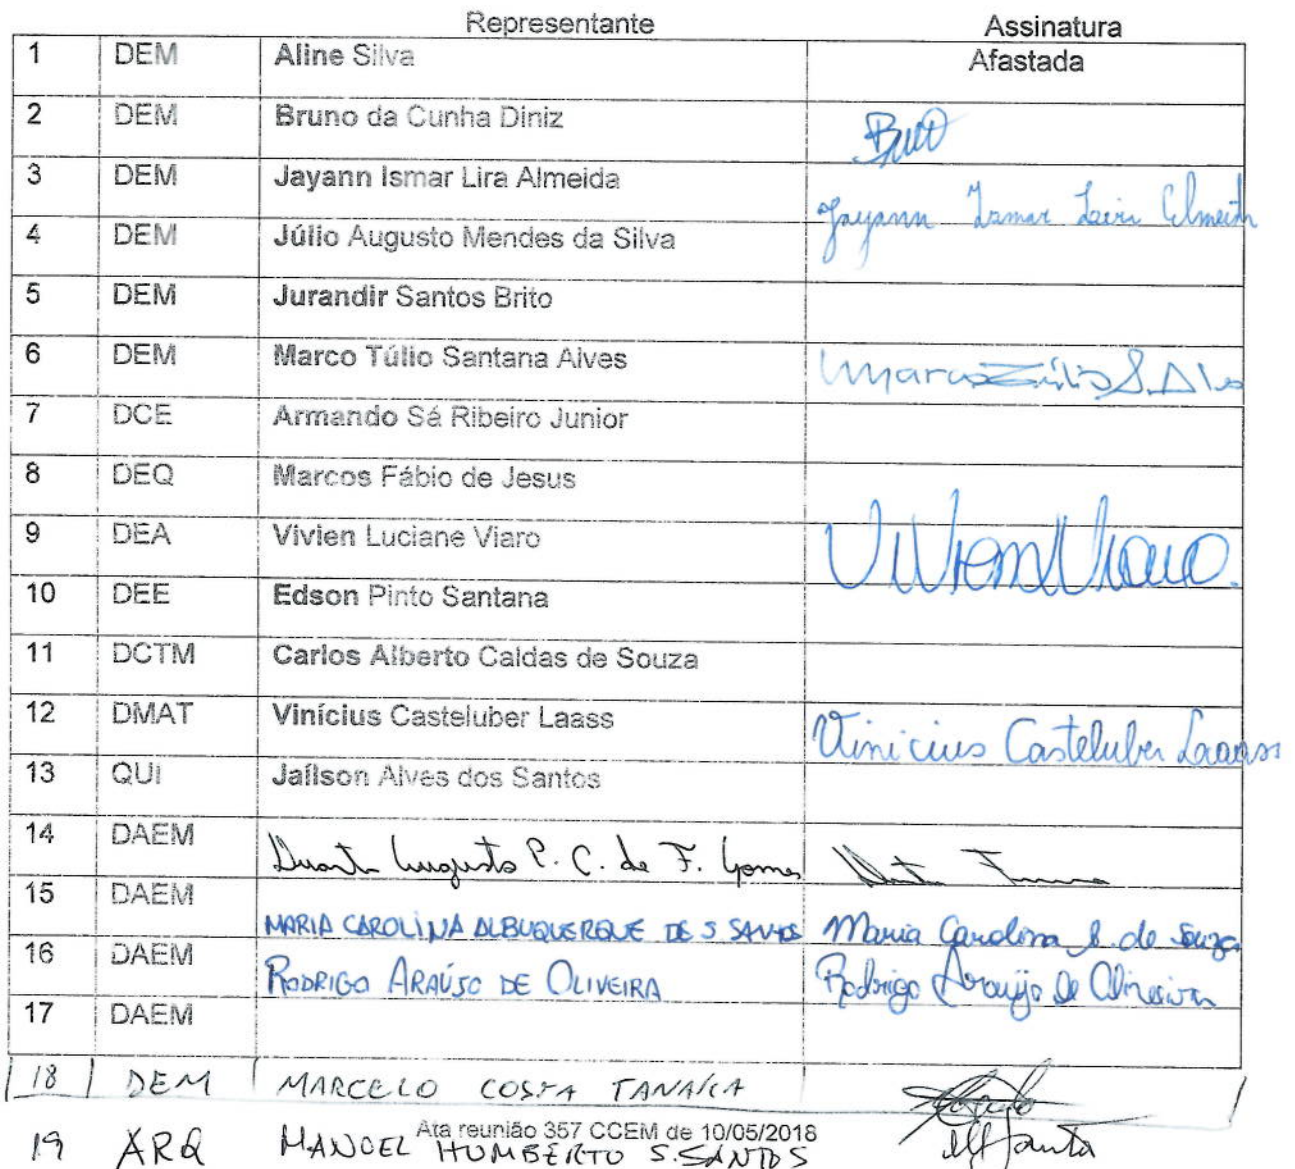 Representante Assinatura
1 DEM Aline Silva Afastada
2 DEM Bruno da Cunha Diniz
3 DEM Jayann Ismar Lira Almeida Jayann Ismar Lira Almeida
4 DEM Júlio Augusto Mendes da Silva
5 DEM Jurandir Santos Brito
6 DEM Marco Túlio Santana Alves Marco Túlio S. Alves
7 DCE Armando Sá Ribeiro Junior
8 DEQ Marcos Fábio de Jesus
9 DEA Vivien Luciane Viaro Vivien Viaro
10 DEE Edson Pinto Santana
11 DCTM Carlos Alberto Caldas de Souza
12 DMAT Vinícius Casteluber Laass Vinicius Casteluber Laass
13 QUI Jailson Alves dos Santos
14 DAEM Duarte Augusto P. C. de F. Gomes
15 DAEM MARIA CAROLINA ALBUQUERQUE DE S SANTOS Maria Carolina A. de Souza
16 DAEM RODRIGO ARAÚJO DE OLIVEIRA Rodrigo Araújo de Oliveira
17 DAEM
18 DEM MARCELO COSTA TANAKA
Ata reunião 357 CCEM de 10/05/2018
19 ARQ MANOEL HUMBERTO S. SANTOS